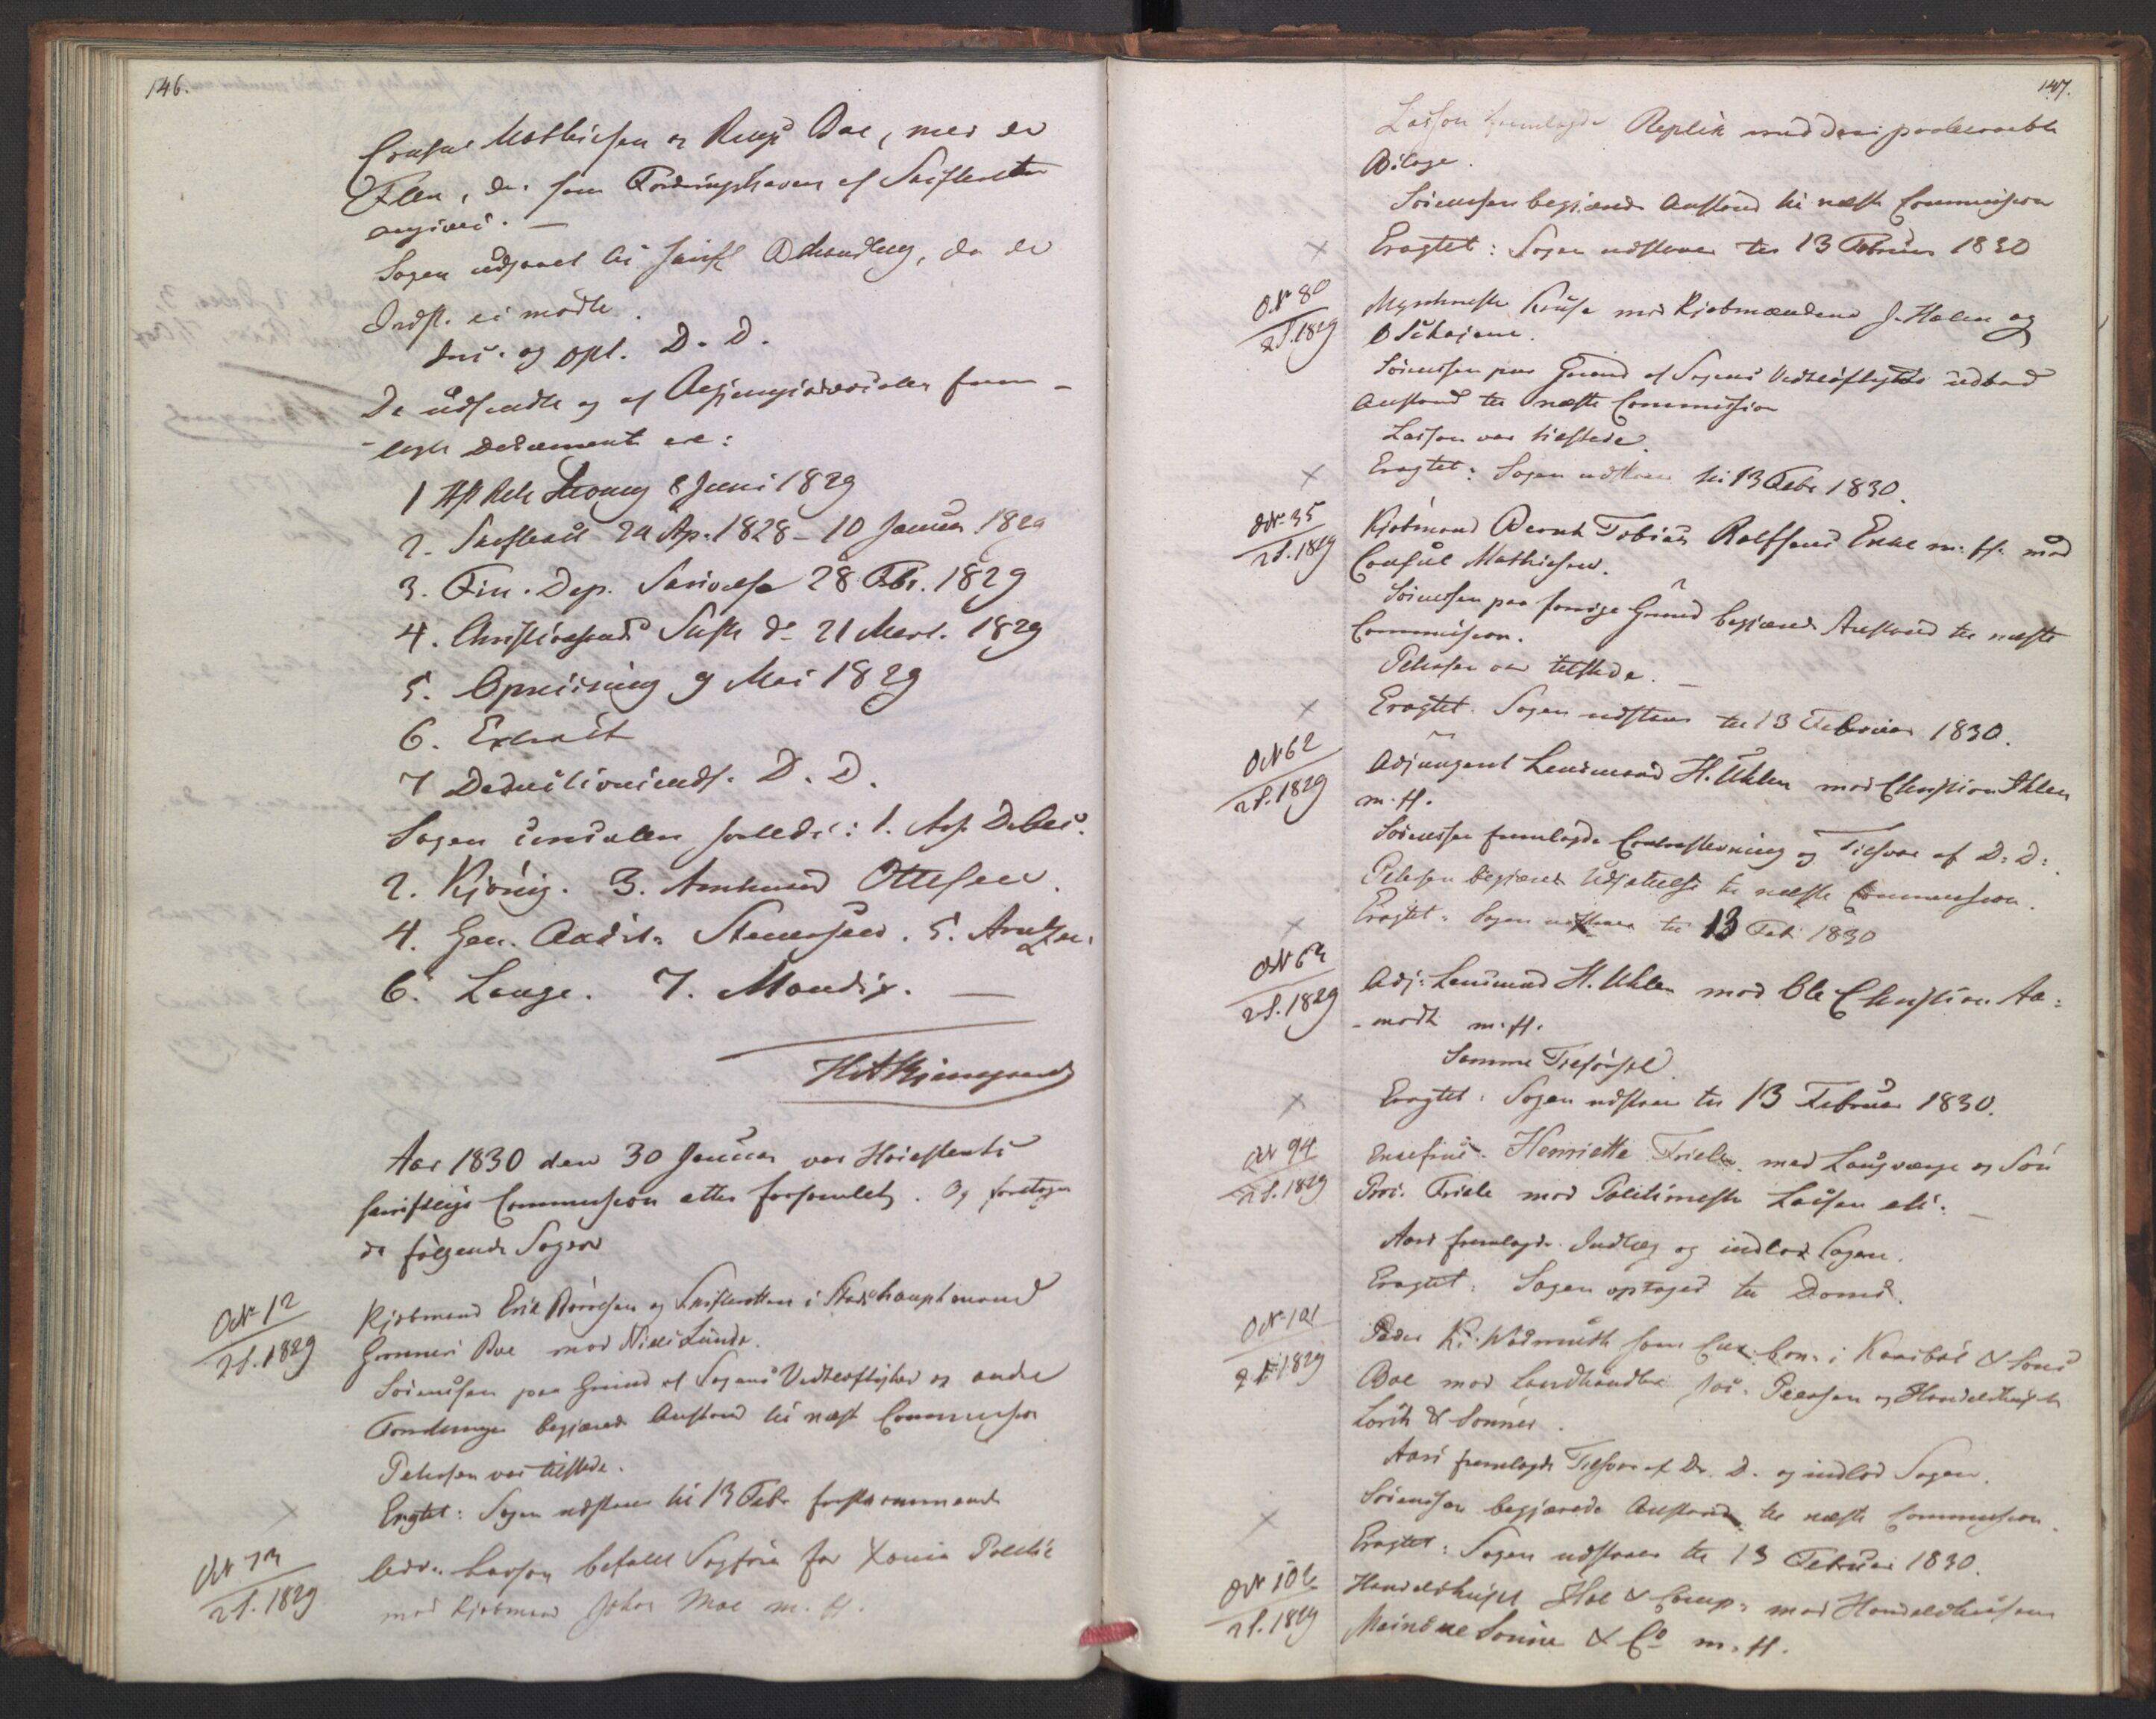 146.
Mathiesen og Boe, med de
Flere, der som Fordringshavere af
angives. —
Sagen udgaaet til skriftl. Behandling, da de
Indst. ei mødte.
og D. D.
De udsendte og af frem-
-lagte Documenter ere:
1 8 Juni 1829
2. 24 Ap. 1828 – 10 Januar 1829
3. Fin. Dep. Skrivelse 28 Fbr. 1829
4. Christiansands Stifts do 21 Mart. 1829
5. Opreisning 9 Mai 1829
6. Extract
7 Deductionsindl. D. D.
Sagen saaledes: 1. Ass. Debes.
2. Kiønig. 3. Amtmand Ottesen.
4. Gen. Audit. Stenersen. 5. Arntzen.
6. Lange. 7. Mandix. —
Aar 1830 den 30 Januar var Høiesterets
skriftlige Commission atter forsamlet. Og foretoges
da følgende Sager
No 12
2 S. 1829
Kjøbmand Erik Børresen og Skifteretten i Stadshauptmand
Boe mod Niels Lunde.
Sørenssen paa Grund af Sagens Vidtløftighed og andre
Forretninger begjærede Anstand til næste Commission
Petersen var tilstede.
×
Eragtet: Sagen udstaaer til 13 Febr. førstkommende
No 73
2 S. 1829
Adv. Lasson befalet Sagfører for
mod Kjøbmand Johan Moe m. fl.
147.
Lasson fremlagde Replik med
Bilage.
Sørenssen begjærede Anstand til næste Commission
×
Eragtet: Sagen udstaaer til 13 Februar 1830
No 80
2 S. 1829
Kruse mod Kjøbmændene J. Holm og
O
Sørenssen paa Grund af Sagens Vidtløftighed udbad
Anstand til næste Commission
Lasson var tilstede.
×
Eragtet: Sagen udstaaer til 13 Febr 1830.
No 35
2 S. 1829
Kjøbmand Bernt Tobias Rolfsens Enke m. fl. mod
Consul Mathiesen.
Sørenssen paa forrige Grund begjærede Anstand til næste
Commission.
Petersen var tilstede. —
×
Eragtet. Sagen udstaaer til 13 Februar 1830.
No 62
2 S. 1829
Adjungeret Lensmand H. Uhlen mod Christian Uhlen
m. fl.
Sørenssen fremlagde Contrastevning og Tilsvar af D. D.
Petersen begjærede Udsættelse til næste Commission.
×
Eragtet: Sagen udstaaer til 13 Feb 1830
No 63
2 S. 1829
Adj. Lensmand H. Uhlen mod Ole Christian Aa-
-modt m. fl.
Samme Tilførsel.
×
Eragtet: Sagen udstaaer til 13 Februar 1830.
No 94
2 S. 1829
Enkefrue Henriette Friele med Laugværge og Søn
Friele mod Politimester Lassen etc. —
Aars fremlagde Indlæg og indlod Sagen.
Eragtet: Sagen optages til Doms.
No 101
2 S. 1829
Peder Kr. Wadmuth som Cur. bon. i Kaarbøe & Søns
Boe mod Landhandler Jac. Petersen og Handelshuset
Lorck & Sønner.
Aars fremlagde Tilsvar af Dr. D. og indlod Sagen.
Sørenssen begjærede Anstand til næste Commission.
×
Eragtet: Sagen udstaaer til 13 Februar 1830.
No 102
2 S. 1829
Handelshuset Hoe & Comp. mod Handelshusene
Sønner & Co m. fl.